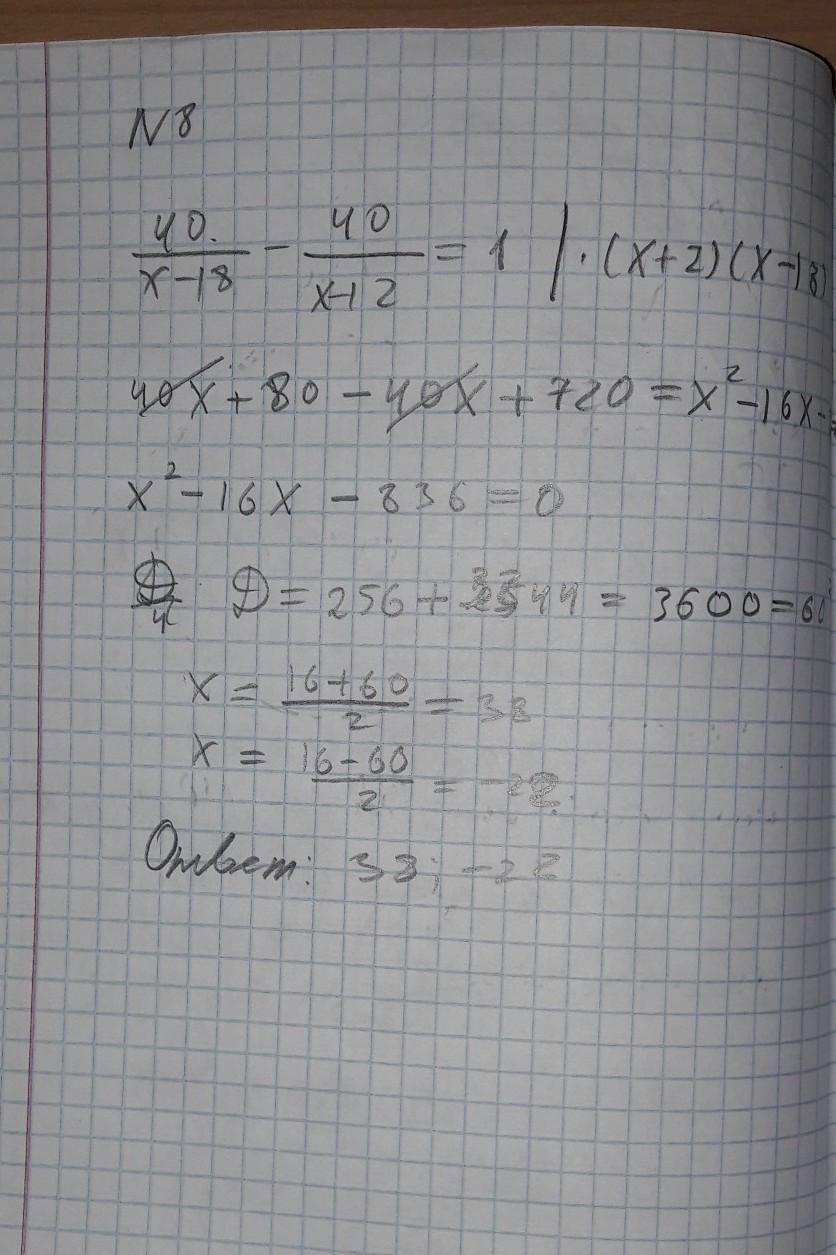 N8
40/(x-18) - 40/(x+2) = 1 | · (x+2)(x-18)
40x + 80 - 40x + 720 = x² - 16x -
x² - 16x - 836 = 0
D/4 D = 256 + 3344 = 3600 = 60²
x = (16+60)/2 = 38
x = (16-60)/2 = -22
Ответ: 38; -22